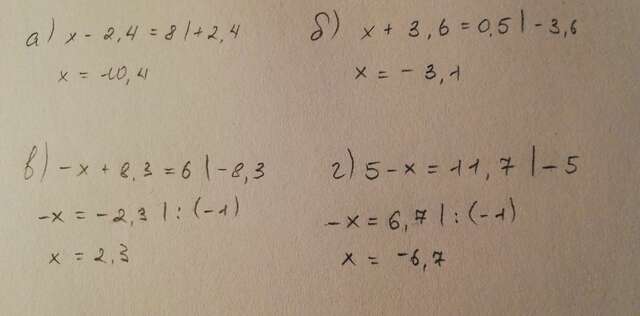 а) x - 2,4 = 8 | + 2,4
x = -10,4
б) x + 3,6 = 0,5 | - 3,6
x = - 3,1
в) - x + 8,3 = 6 | - 8,3
-x = - 2,3 | : (-1)
x = 2,3
г) 5 - x = 11,7 | - 5
-x = 6,7 | : (-1)
x = -6,7